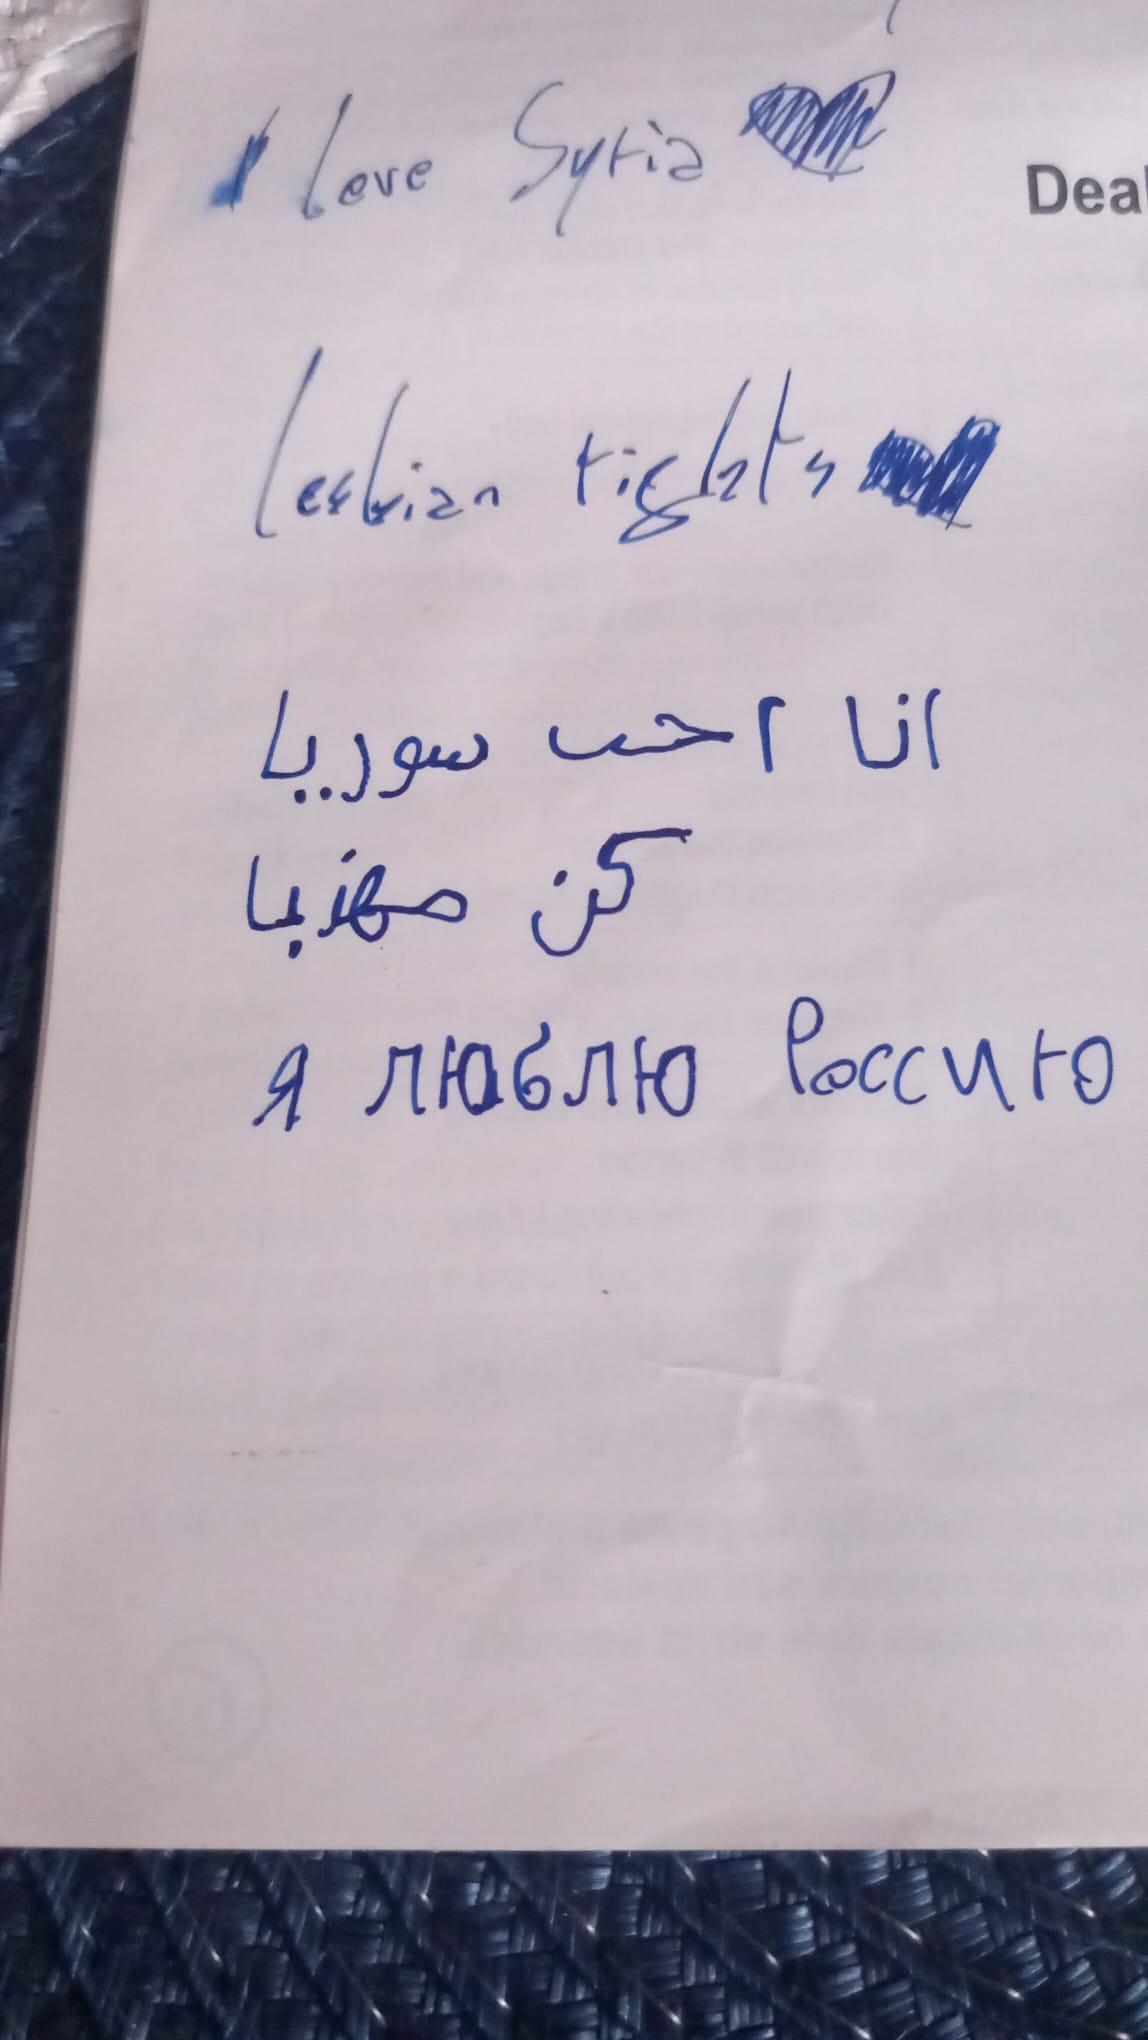 I love Syria
Deal
lesbian rights
انا احب سوريا
كن مهذبا
я люблю Россию